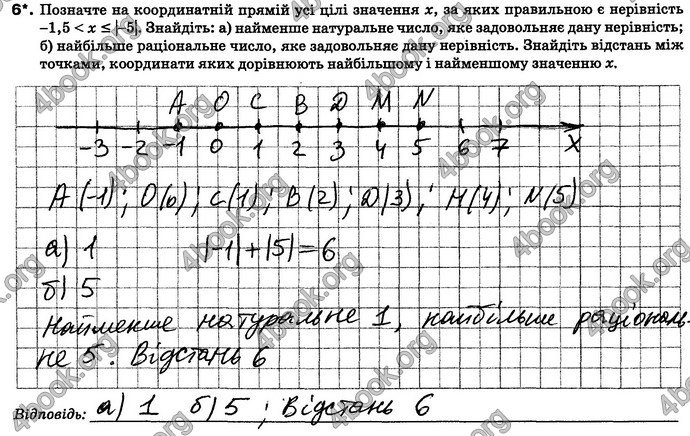 6*. Позначте на координатній прямій усі цілі значення x, за яких правильною є нерівність
–1,5 < x ≤ |–5|. Знайдіть: а) найменше натуральне число, яке задовольняє дану нерівність;
б) найбільше раціональне число, яке задовольняє дану нерівність. Знайдіть відстань між
точками, координати яких дорівнюють найбільшому і найменшому значенню x.
A O C B D M N
-3 -2 -1 0 1 2 3 4 5 6 7 X
A(-1); O(0); C(1); B(2); D(3); M(4); N(5)
а) 1 |-1|+|5|=6
б) 5
Найменше натуральне 1, найбільше раціональ-
не 5. Відстань 6
Відповідь: а) 1 б) 5; Відстань 6
4book.org